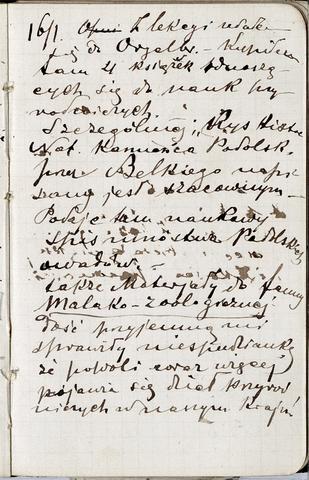 16/1. Z lekcyi udałem
się do Orgelbr. – Kupiłem
tam 4 książek odnoszą-
cych się do nauk przy-
rodniczych.
Szczególniej „Rys Histor.
Nat. Kamieńca Podolsk.
przez Belkiego napi-
sany jest szacownym –
Podaje tam naukowy
spis mnóstwa Podolskiej
owadów –
także Materjały do fauny
Malako-zoologicznej
Dość przyjemną mi
sprawiły niespodziankę
że powoli coraz więcej
pojawia się dzieł przyrod
niczych w naszym kraju